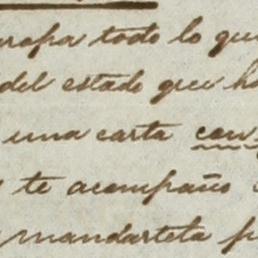 todo lo que
del estado que
una carta
te acompaño
mandartela